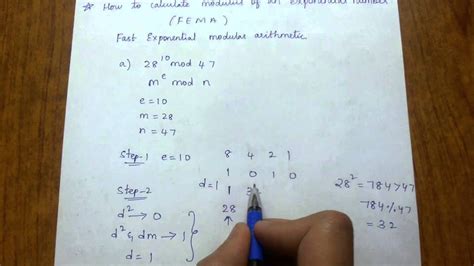 * How to calculate modulus of an exponential number
(FEMA)
Fast Exponential modular arithmetic
a) 28^10 mod 47
m^e mod n
e = 10
m = 28
n = 47
Step-1 e = 10 8 4 2 1
1 0 1 0
Step-2 d=1 1
d² → 0 28
d² & dm → 1 ↑
d = 1
28² = 784 > 47
784 % 47
= 32